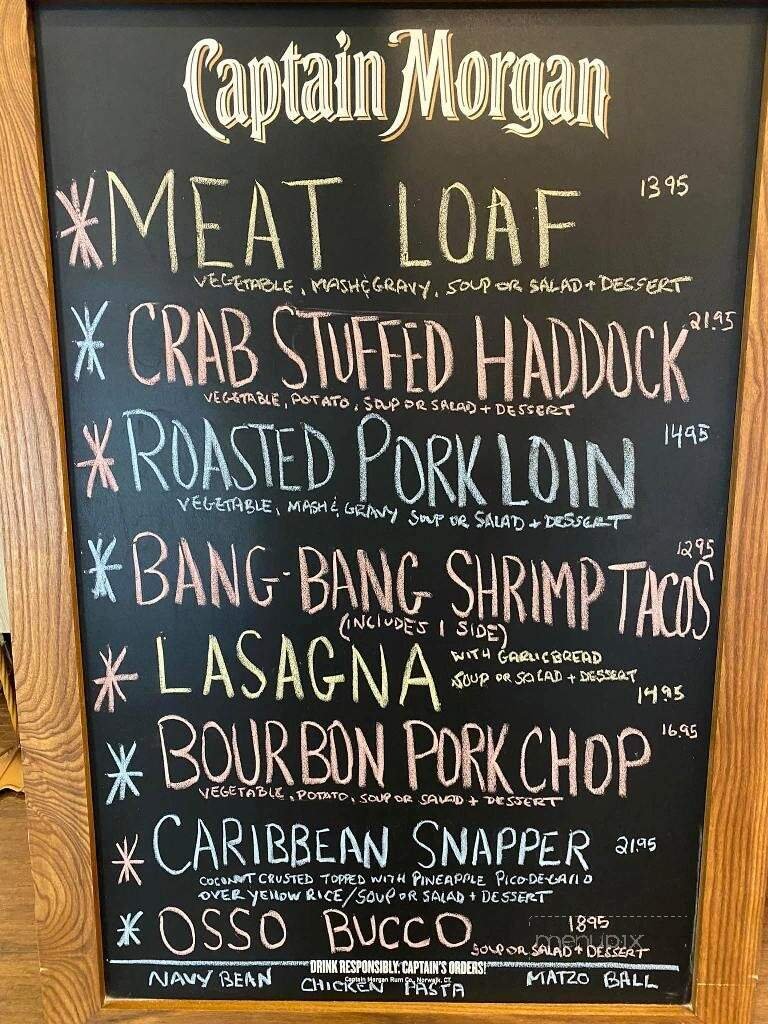 Captain Morgan
MEAT LOAF 13.95
VEGETABLE, MASH & GRAVY, SOUP OR SALAD + DESSERT
CRAB STUFFED HADDOCK 21.95
VEGETABLE, POTATO, SOUP OR SALAD + DESSERT
ROASTED PORK LOIN 14.95
VEGETABLE, MASH & GRAVY SOUP OR SALAD + DESSERT
BANG-BANG SHRIMP TACOS 12.95
(INCLUDES 1 SIDE)
LASAGNA WITH GARLIC BREAD
SOUP OR SALAD + DESSERT
14.95
BOURBON PORK CHOP 16.95
VEGETABLE, POTATO, SOUP OR SALAD + DESSERT
CARIBBEAN SNAPPER 21.95
COCONUT CRUSTED TOPPED WITH PINEAPPLE PICO-DE-GALLO
OVER YELLOW RICE/SOUP OR SALAD + DESSERT
OSSO BUCCO 18.95
SOUP OR SALAD + DESSERT
menupix
DRINK RESPONSIBLY: CAPTAIN'S ORDERS!
Captain Morgan Rum Co., Norwalk, CT
NAVY BEAN CHICKEN PASTA MATZO BALL